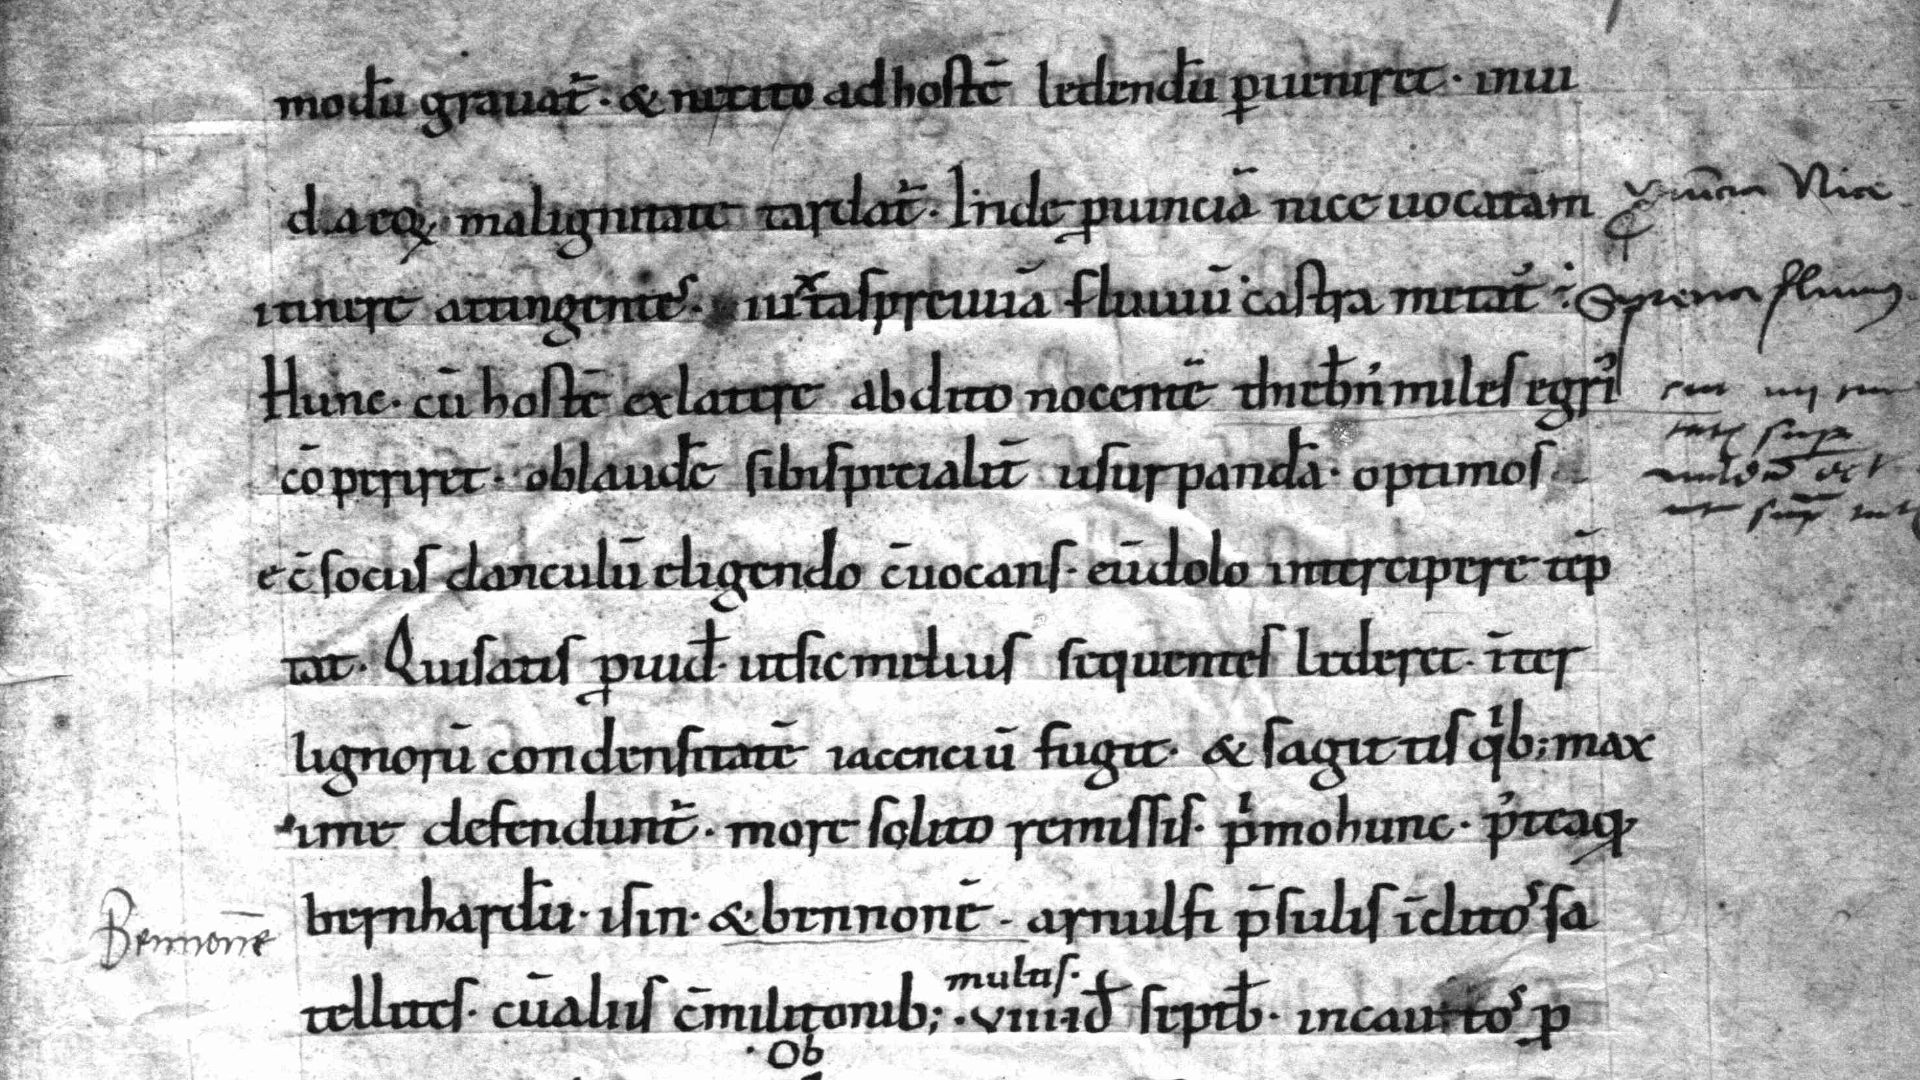 modũ grauat̃· & ne cito ad hostẽ ledendũ ꝑueniret· inui
diaeq; malignitate tardat̃· Inde ꝓuinciã nice uocatam
itinere attingentes· iuxta spreuuã fluuiũ castra metat̃·
Hunc· cũ hostẽ ex latere abdito nocentẽ thiebñi miles egrĩ
cõperiret· ob laudẽ sibi specialit̃ usurpandã· optimos
ec̃ socius clanculũ eligendo c̃uocans· eũ dolo intercipere tẽp
tat· Qui satis ꝓuid̃· ut sic melius sequentes lederet· ĩter
lignorũ condensitatẽ iacenciũ fugit· & sagittis qͥb; max
ime defendunt̃· more solito remissis· pͥmo hunc· p̾teaq;
bernhardũ· isin· & bennonẽ· arnulfi p̃sulis ĩclitos sa
tellites· cũ aliis c̃militonib; ·viiii·id̃ septẽb· incautos p
multis·
·Ob
ꝓuincia Nice
Sprena fluuius
Bennonẽ